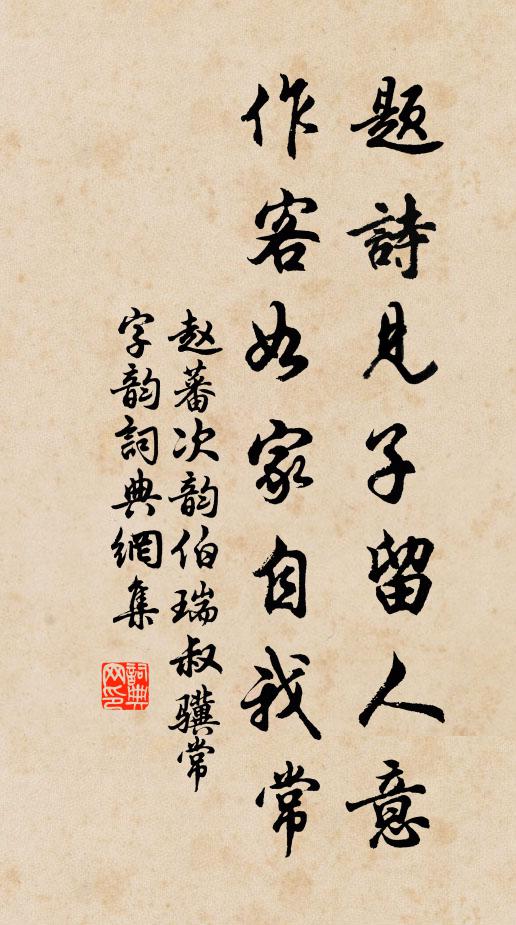 題詩見子留人意
作客如家自我常
赵蕃次韵伯瑞叔骥常
字韵詞典網集
詞典
网印